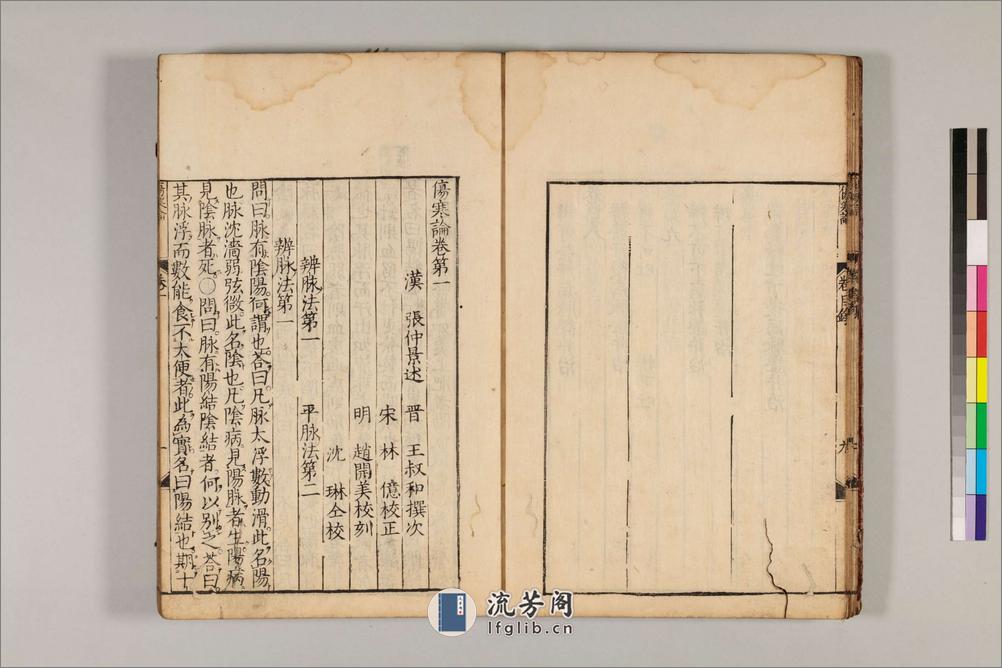 卷目錄
九
傷寒論卷第一
漢 張仲景述 晋 王叔和撰次
宋 林 億校正
明 趙開美校刻
沈 琳仝校
辨脉法第一 平脉法第二
辨脉法第一
問曰脉有陰陽何謂也荅曰凡脉大浮數動滑此名陽
也脉沈濇弱弦微此名陰也凡陰病見陽脉者生陽病
見陰脉者死○問曰脉有陽結陰結者何以别之荅曰
其脉浮而數能食不大便者此為實名曰陽結也期十
卷一
一
流芳阁
lfglib.cn